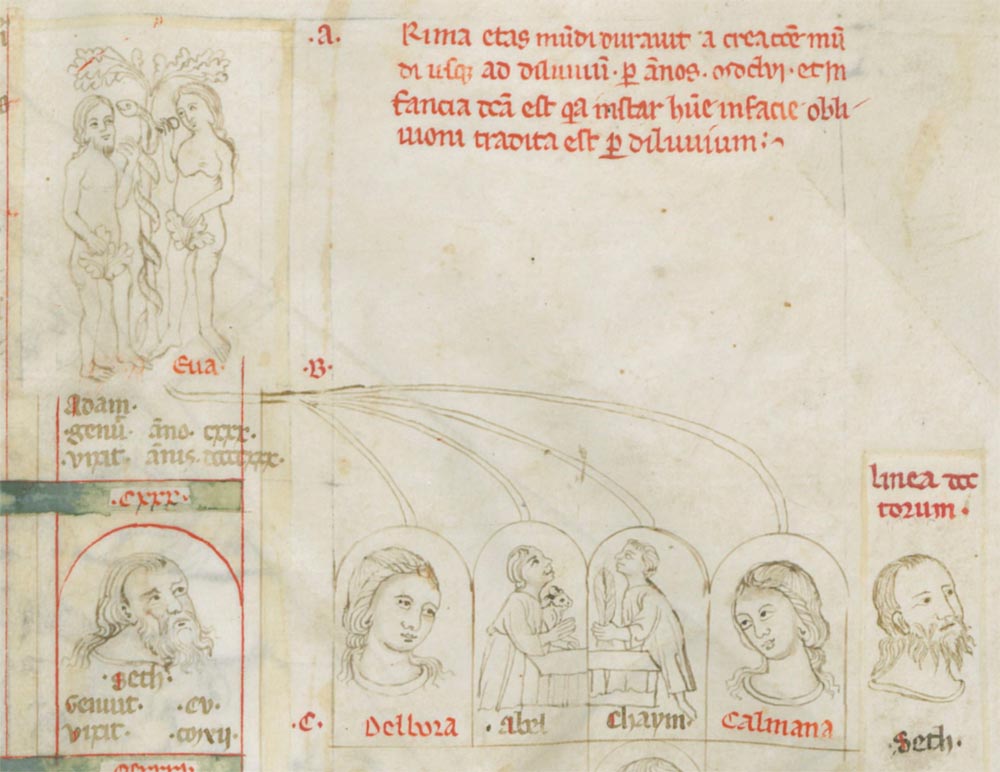 .A. Rima etas mūdi durauit a creaccōe mū
di usq; ad diluuiū · p̄ ānos · mdclvi · et in
fancia dcā est q̄a instar hūe infacie obli
uioni tradita est p̄ diluuium :~
Eua
.B.
Adam·
·genū· āno· cxxx·
·vixit· ānis·
·cxxx·
linea
torum ·
·Seth·
Genuit· ·cv·
vixit·
.C. Delbora ·Abel Chaym· Calmana
·Seth·